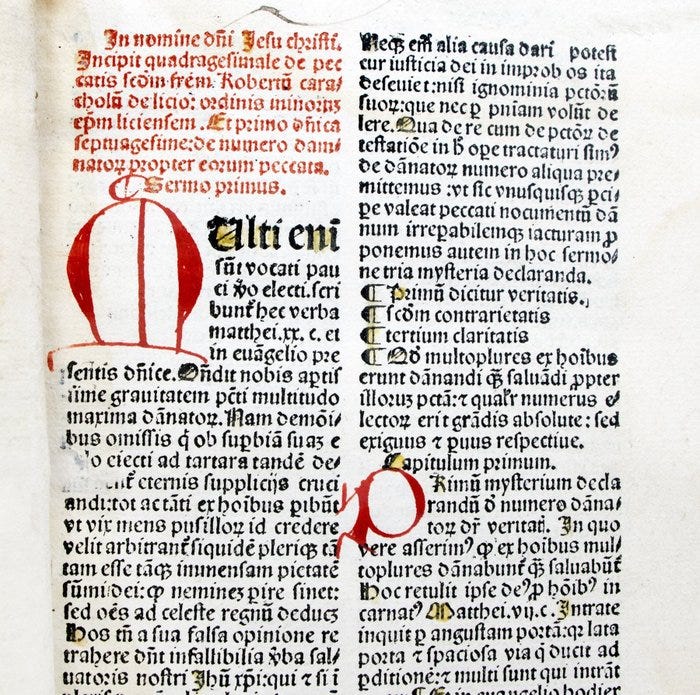 In nomine dñi Jesu christi.
Incipit quadragesimale de pec
catis scd̄m frēm. Robertū cara/
cholū de licio: ordinis minorūꝫ
ep̄m liciensem. Et primo dn̄ica
septuagesime: de numero dam/
natoꝝ propter eorum peccata.
Sermo primus.
Multi enī
sūt vocati pau
ci v̄o electi. scri
bunt᷑ hec verba
matthei. xx. c. et
in euāgelio pre
sentis dn̄ice. Oñdit nobis aptis
sime grauitatem pc̄ti multitudo
maxima dānatoꝝ. Nam demōi/
bus omissis q̄ ob supbiā suaꝫ e
lo eiecti ad tartara tandē de/
eternis supplicijs cruci
andi: tot ac tāti ex hoībus pibūt᷑
vt vix mens pusilloꝝ id credere
velit arbitrant᷑ siquidē pleriqꝫ tā
tam esse tāqꝫ inmensam pietatē
sūmi dei: ꝙ neminez pire sinet:
sed oēs ad celeste regnū deducꝫ
Hos tn̄ a sua falsa opinione re
trahere dn̄t infallibilia v̄ba sal/
uatoris nostri Jhū xp̄i: qui ⁊ si i
Neqꝫ em̄ alia causa dari potest
cur iusticia dei in improbos ita
deseuiet: nisi ignominia pctōꝝ
suoꝝ: que nec p pn̄iam volūt de
lere. Qua de re cum de pctōꝝ de
testatiōe in h̄ ope tractaturi sim⁹
de dānatoꝝ numero aliqua pre/
mittemus: vt sic vnusquisqꝫ pci/
pe valeat peccati nocumentū dā
num irrepabilemqꝫ iacturam ꝓ
ponemus autem in hoc sermo/
ne tria mysteria declaranda.
¶ Primū dicitur veritatis.
¶ scd̄m contrarietatis
¶ tertium claritatis
¶ Qd̄ multoplures ex hoībus
erunt dānandi qꝫ saluādi ꝓpter
illoruꝫ pctā: ⁊ qualr̄ numerus e/
lectoꝝ erit grādis absolute: sed
exiguus ⁊ puus respectiue.
Capitulum primum.
PRimū mysterium decla
randū d̄ numero dāna/
toꝝ dr̄ veritatꝭ. In quo
vere asserim⁹ ꝙ ex hoībus mul/
toplures dānabunt᷑ qꝫ saluabūt᷑
Hoc retulit ipse de⁹ ꝓ hōib⁹ in
carnat⁹ Matthei. vij. c. Intrate
inquit p angustam portā: qꝛ lata
porta ⁊ spaciosa via q̄ ducit ad
pditionē: ⁊ multi sunt qui intrāt